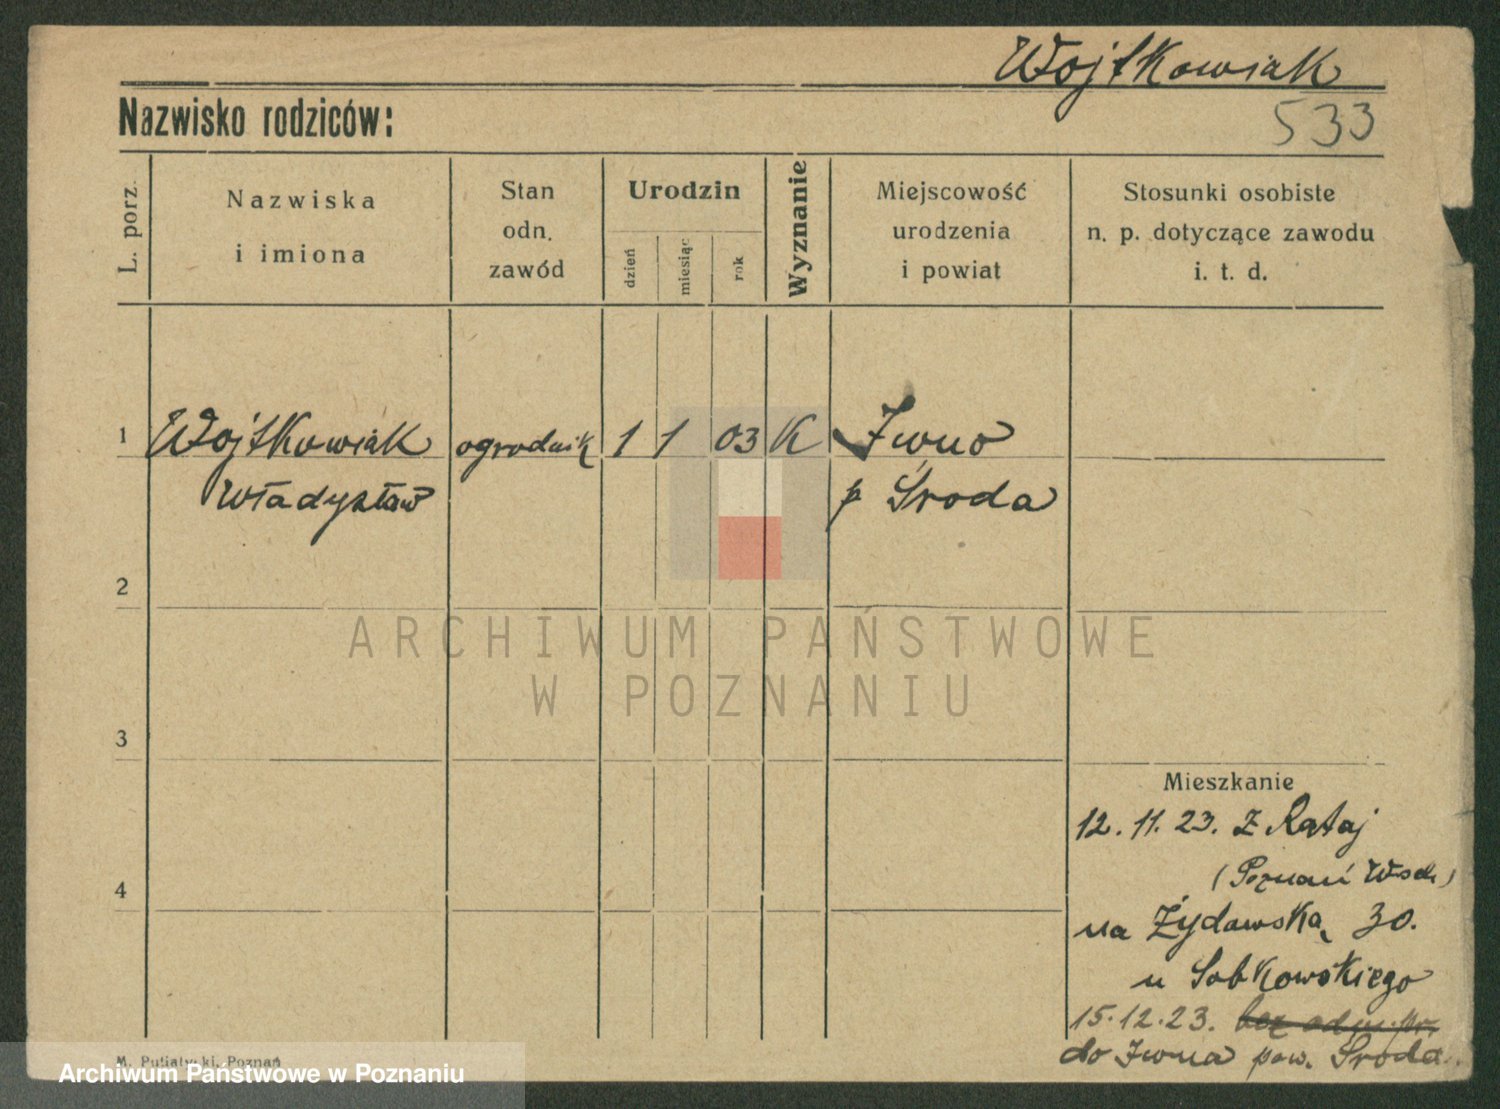 Wojtkowiak
Nazwisko rodziców:
533
L. porz.
Nazwiska
i imiona
Stan
odn.
zawód
Urodzin
dzień
miesiąc
rok
Wyznanie
Miejscowość
urodzenia
i powiat
Stosunki osobiste
n. p. dotyczące zawodu
i. t. d.
1 Wojtkowiak ogrodnik 1 1 03 K Iwno
Władysław p Środa
2
ARCHIWUM PAŃSTWOWE
W POZNANIU
3
Mieszkanie
12. 11. 23. z Rataj
4
(Poznań Wsch)
na Żydowską 30.
u Sobkowskiego
15.12.23. bez odm. pr.
do Iwna pow. Środa.
M. Putiatycki, Poznań
Archiwum Państwowe w Poznaniu